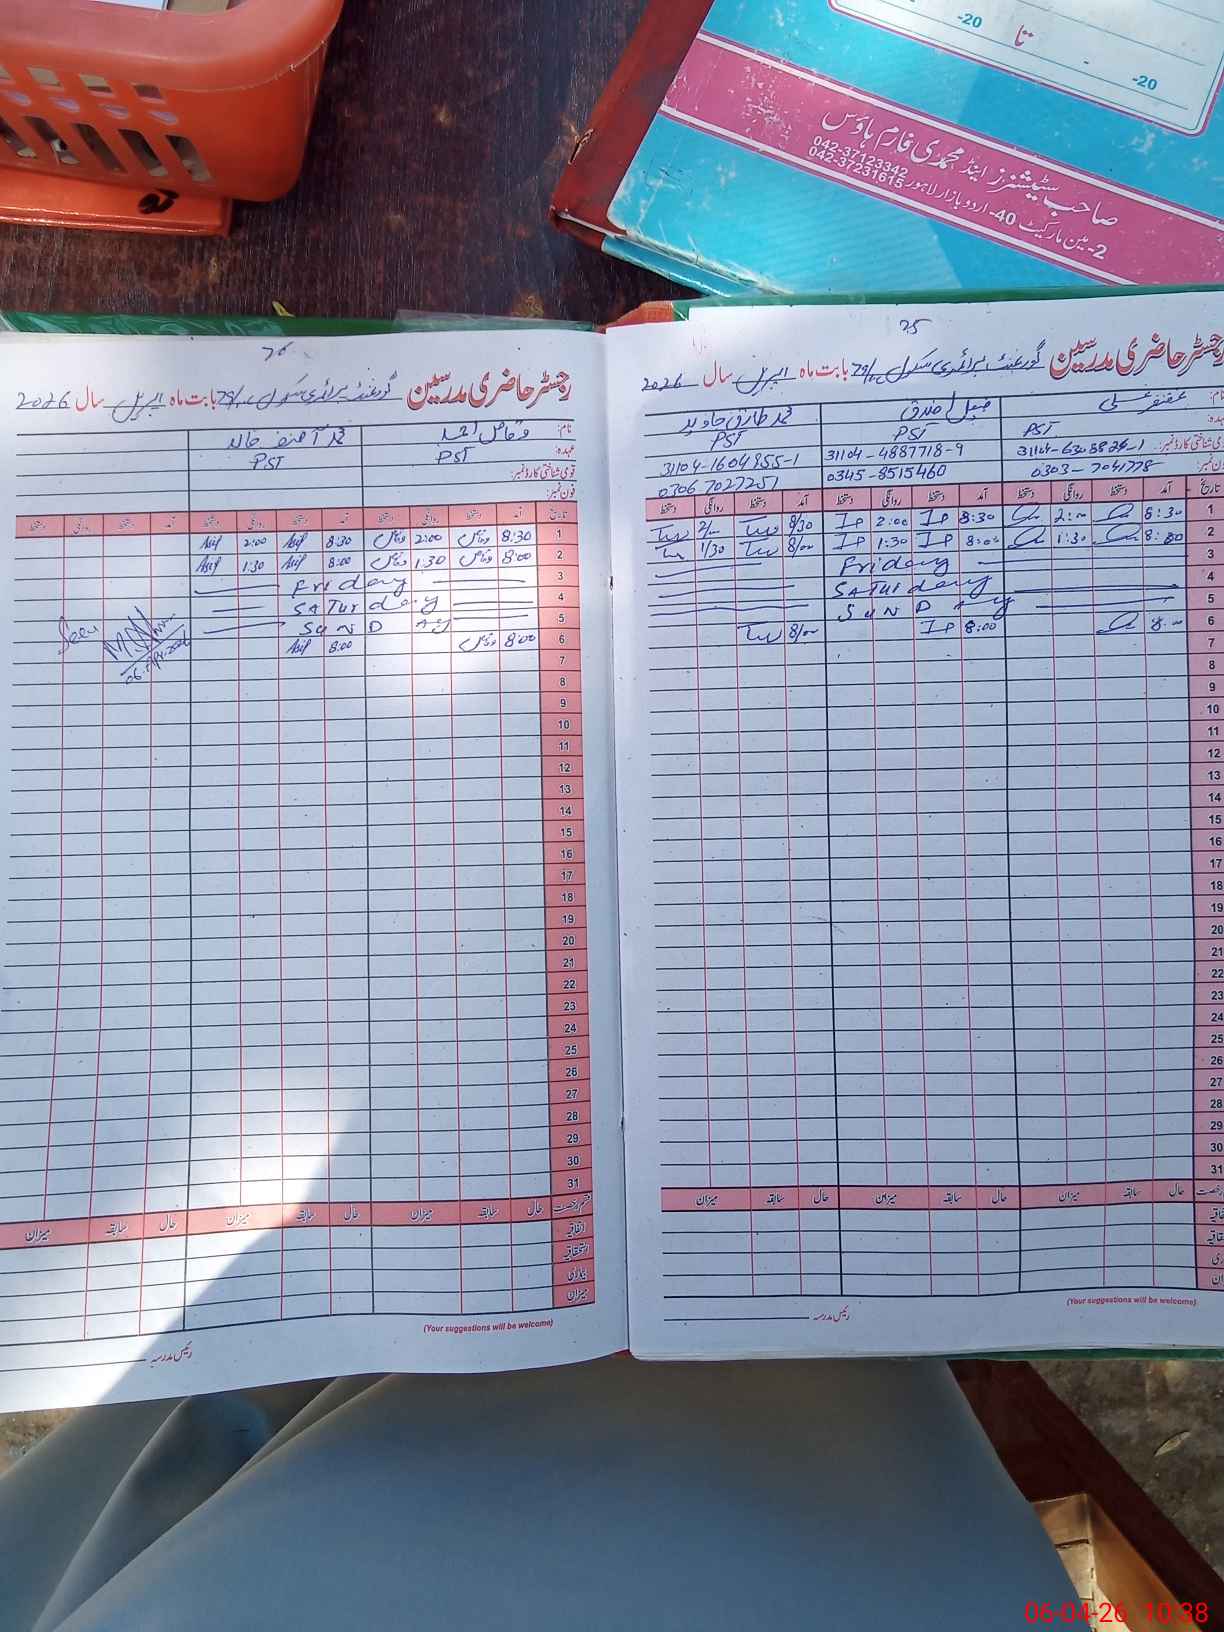 -20 تا -20
صاحب سٹیشنرز اینڈ محمدی فارم ہاؤس
042-37123342
042-37231615
2-مین مارکیٹ 40-اردو بازار لاہور
25
رجسٹر حاضری مدرسین گورنمنٹ پرائمری سکول بابت ماہ اپریل سال 2026
نام: غضنفر علی محمد طارق جاوید
عہدہ: PST PST PST
قومی شناختی کارڈ نمبر: 31104-6308824-1 31104-4887718-9 31104-1604955-1
فون نمبر: 0303-7041778 0345-8515460 0306 7027251
تاریخ آمد دستخط روانگی دستخط آمد دستخط روانگی دستخط آمد دستخط روانگی دستخط
1 8:30 2:00 8:30 IP 2:00 IP 8/30 2/00
2 8:00 1:30 8:00 IP 1:30 IP 8/00 1/30
3 Friday
4 SATurday
5 SUND Ay
6 8:00 8:00 IP 8/00
7
8
9
10
11
12
13
14
15
16
17
18
19
20
21
22
23
24
25
26
27
28
29
30
31
حال سابقہ میزان حال سابقہ میزان حال سابقہ میزان
(Your suggestions will be welcome)
رئیس مدرسہ
26
رجسٹر حاضری مدرسین گورنمنٹ پرائمری سکول بابت ماہ اپریل سال 2026
نام: وقاص احمد محمد آصف خالد
عہدہ: PST PST
قومی شناختی کارڈ نمبر:
فون نمبر:
تاریخ آمد دستخط روانگی دستخط آمد دستخط روانگی دستخط آمد دستخط روانگی دستخط
1 8:30 وقاص 2:00 وقاص 8:30 Asif 2:00 Asif
2 8:00 وقاص 1:30 وقاص 8:00 Asif 1:30 Asif
3 Friday
4 SATurday
5 SUND Ay
6 8:00 وقاص 8:00 Asif
Seen
06-Apr-2026
7
8
9
10
11
12
13
14
15
16
17
18
19
20
21
22
23
24
25
26
27
28
29
30
31
قسم رخصت حال سابقہ میزان حال سابقہ میزان حال سابقہ میزان
اتفاقیہ
استحقاقیہ
بیماری
میزان
(Your suggestions will be welcome)
رئیس مدرسہ
06-04-26 10:38